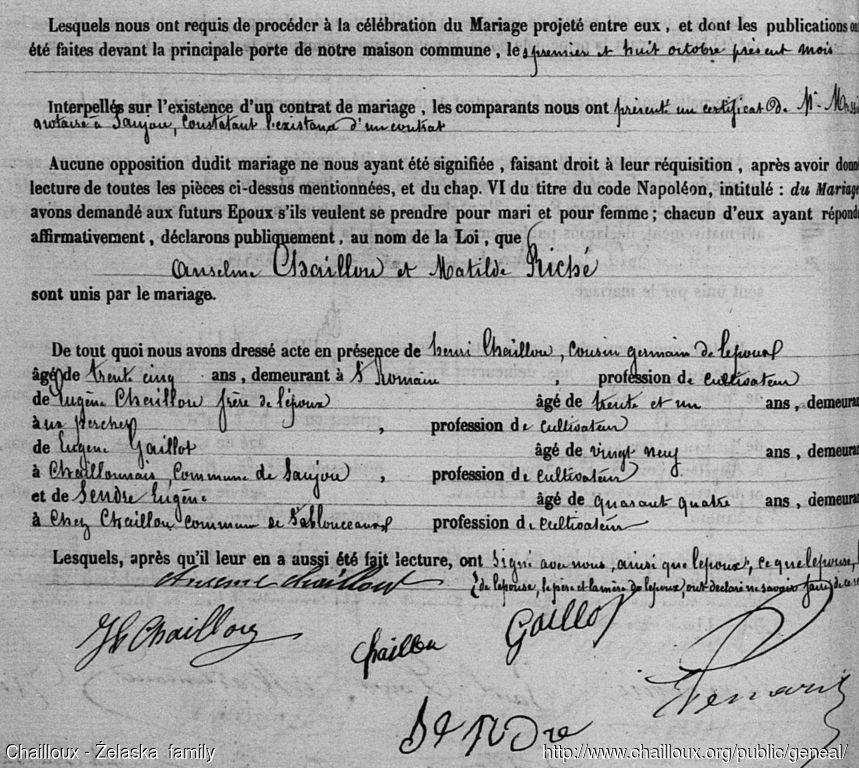 Lesquels nous ont requis de procéder à la célébration du Mariage projeté entre eux, et dont les publications on
été faites devant la principale porte de notre maison commune, les premier et huit octobre présent mois
Interpellés sur l'existence d'un contrat de mariage, les comparants nous ont présenté un certificat de Mr
notaire à Saujon, constatant l'existance d'un contrat
Aucune opposition dudit mariage ne nous ayant été signifiée, faisant droit à leur réquisition, après avoir donn
lecture de toutes les pièces ci-dessus mentionnées, et du chap. VI du titre du code Napoléon, intitulé : du Mariage
avons demandé aux futurs Epoux s'ils veulent se prendre pour mari et pour femme ; chacun d'eux ayant répond
affirmativement, déclarons publiquement, au nom de la Loi, que
Anselme Chaillou et Matilde Riché
sont unis par le mariage.
De tout quoi nous avons dressé acte en présence de henri Chaillou, cousin germain de lepoux
âgé de trente cinq ans, demeurant à St Romain, profession de cultivateur
de Eugène Chaillou frère de l'époux âgé de trente et un ans, demeuran
à profession de cultivateur
de Eugène Gaillot âgé de vingt neuf ans, demeuran
à Chaillonnais, Commune de Saujon, profession de cultivateur
et de Sendre Eugène âgé de quarant quatre ans, demeuran
à Chez Chaillou, commune de profession de cultivateur
Lesquels, après qu'il leur en a aussi été fait lecture, ont signé avec nous, ainsi que lepoux, ce que lepouse,
de lepouse, le père et la mère de lepoux, ont déclaré ne savoir faire de ce
Anselme Chaillout
Chaillou
chaillou
Gaillot
Sendre
Chailloux - Żelaska family
http://www.chailloux.org/public/geneal/